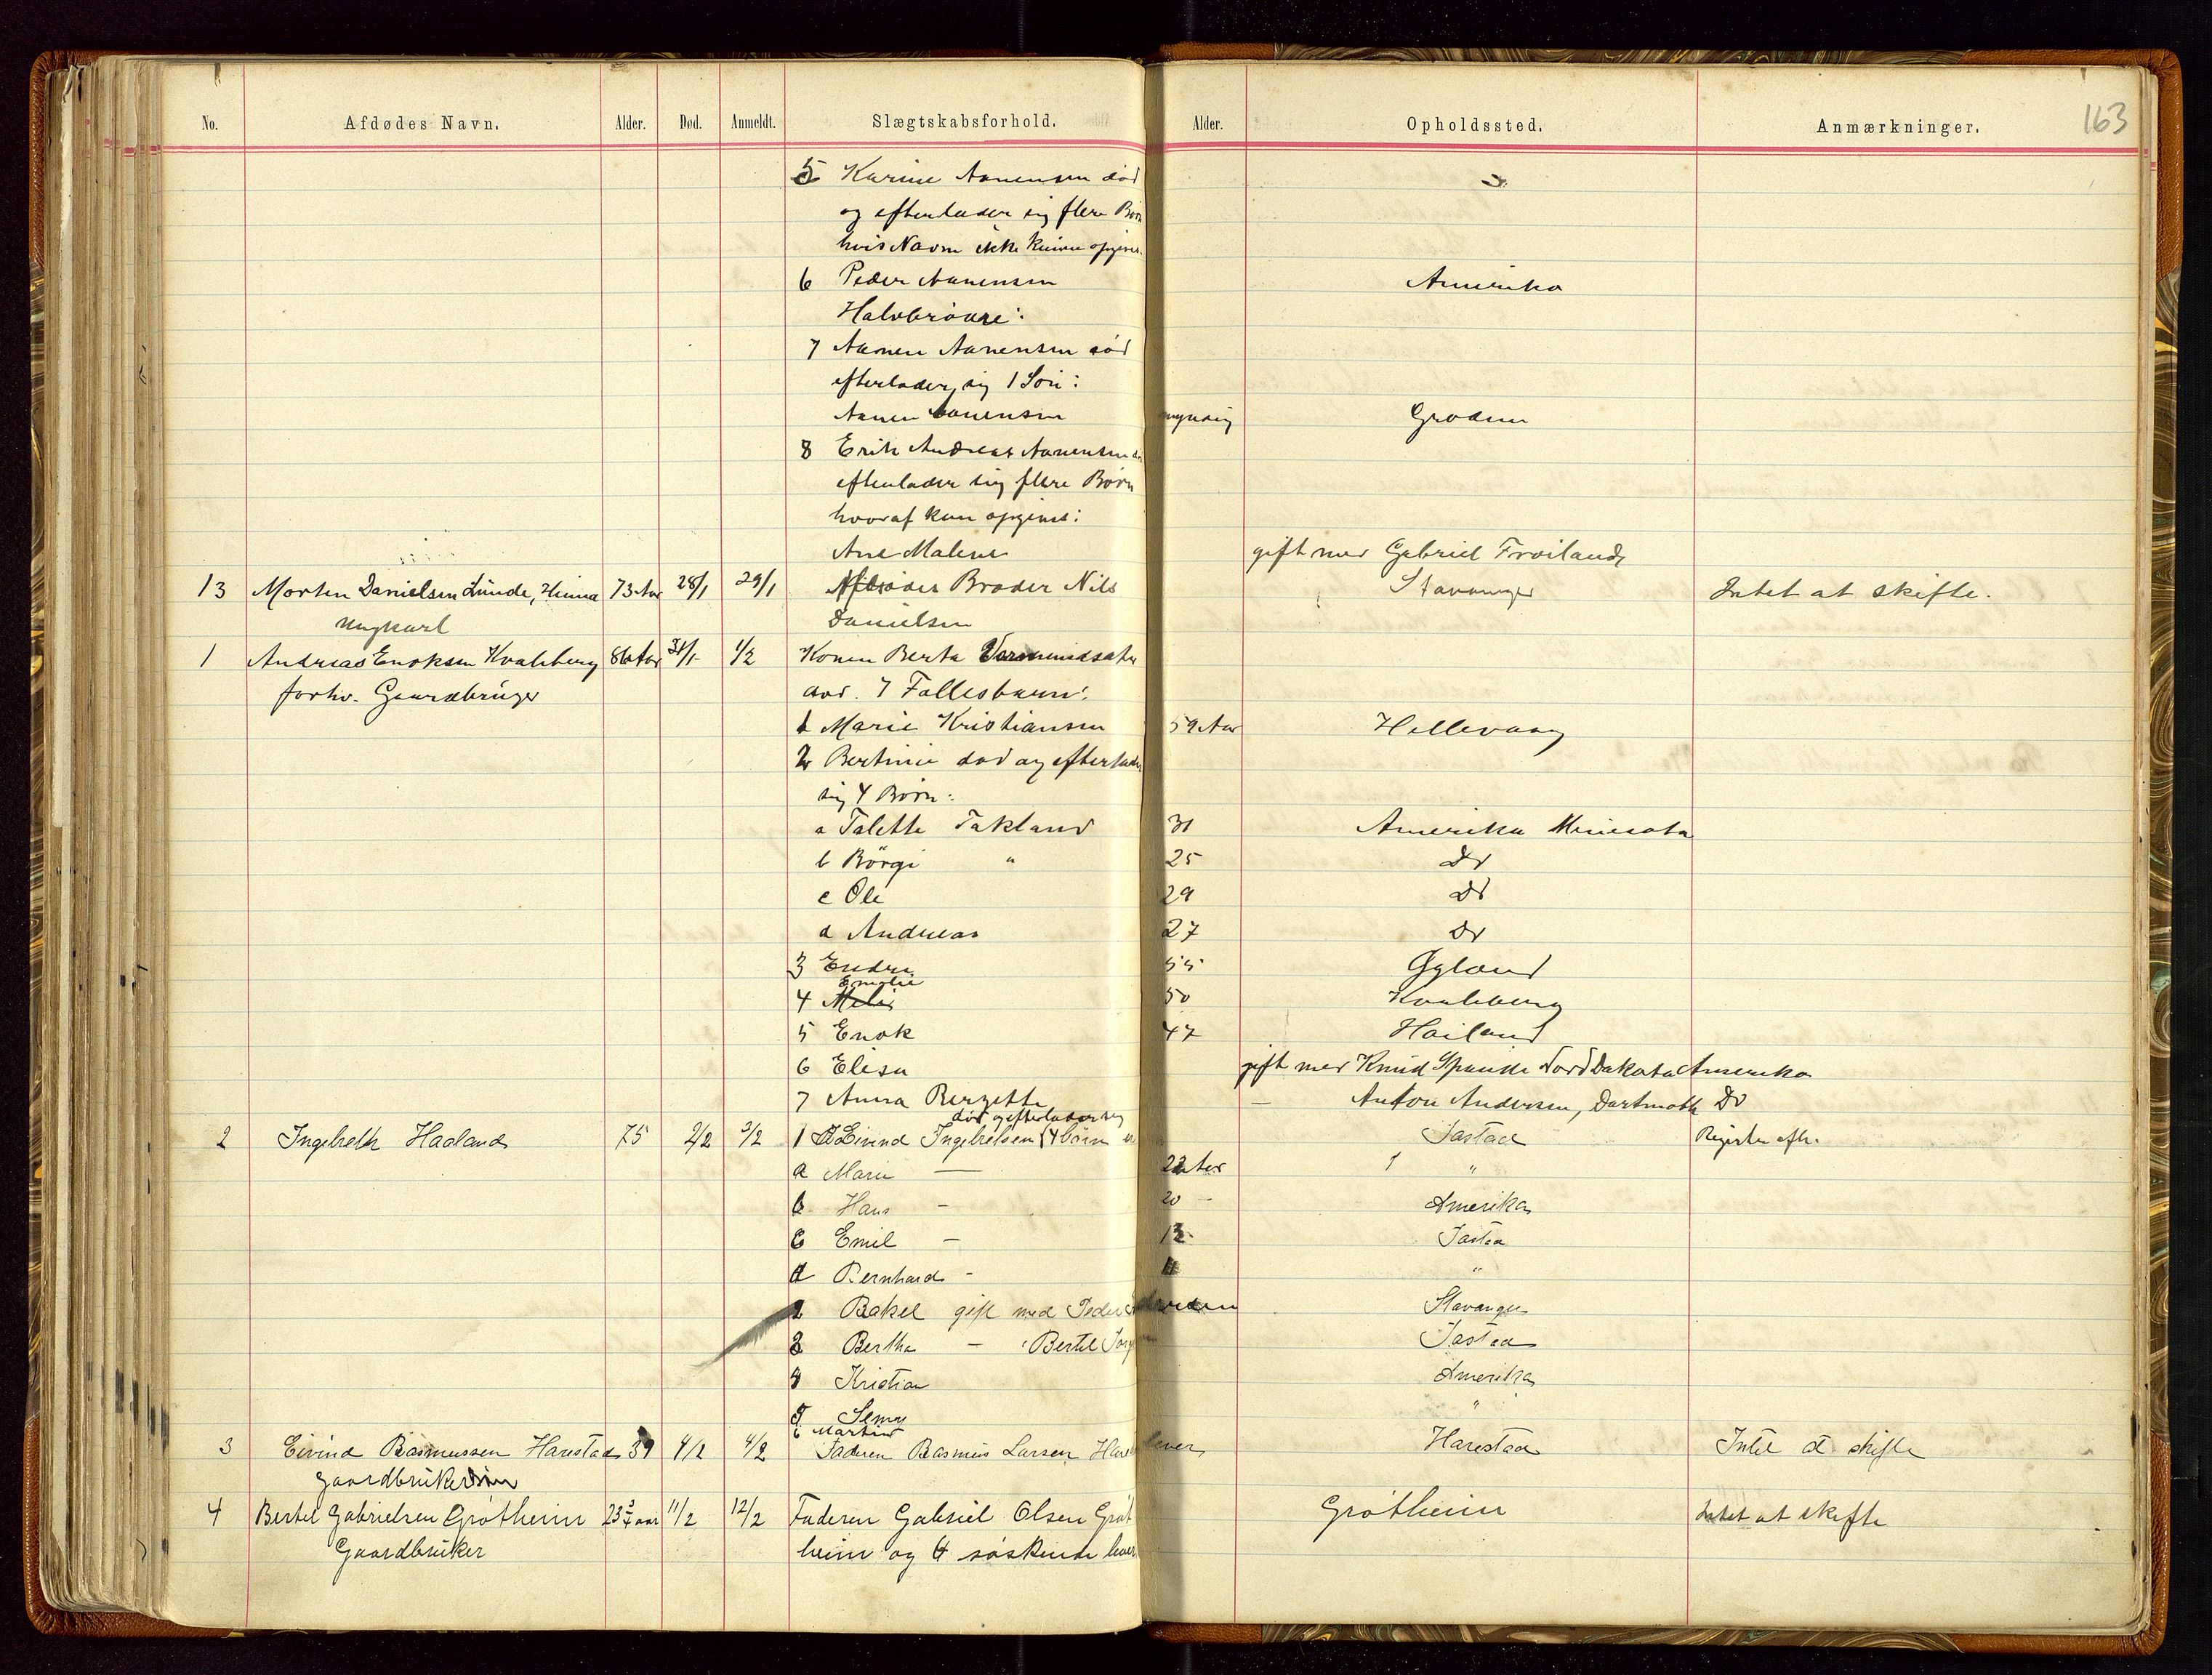 163
No. Afdødes Navn. Alder. Død. Anmeldt. Slægtskabsforhold. Alder. Opholdssted. Anmærkninger.
5 Karine Aanensen død
og efterlader sig flere Børn
hvis Navn ikke kunne opgives.
6 Peder Aanensen Amerika
Halvbrødre:
7 Aanen Aanensen død
efterlader sig 1 Søn:
Aanen Aanensen myndig Grødem
8 Erik Andreas Aanensen
efterlader sig flere Børn
hvoraf kun opgives:
Ane Malene gift med Gabriel Froiland
13 Morten Danielsen Lunde, Hinna 73 Aar 28/1 29/1 Broder Nils Stavanger Intet at skifte.
Ungkarl Danielsen
1 Andreas Enoksen Kvaleberg 86 Aar 31/1 1/2 Konen Berta
forhv. Gaardbruger 7 Fællesbørn:
1 Marie Kristiansen 59 Aar Hellevaag
2 Bertine død og efterlader
sig 4 Børn:
a Talette Takland 31 Amerika Minesota
b Börgi " 25 Do
c Ole 29 Do
d Andreas 27 Do
3 Endre 55 Gyland
Emelie
4 50 Kvaleberg
5 Enok 47 Hoiland
6 Elisa gift med Knud Spande Nord Dakota Amerika
7 Anna Bergette — Anton Andersen, Dartmoth Do
død og efterlader sig
2 Ingebreth Haaland 75 2/2 3/2 1 Eivind Ingebretsen 4 börn Jastad Register efh.
a Marie — 22 Aar "
b Hans — 20 — Amerika
c Emil — 13 Jastad
d Bernhard - "
2 Rakel gift med Peder Stavanger
3 Bertha — Bertel Jastad
4 Kristian Amerika
5 "
6 Martin
3 Eivind Rasmussen Harestad 39 4/2 4/2 Faderen Rasmus Larsen Harestad lever Harestad Intet at skifte
gaardbrukersøn
4 Bertel Gabrielsen Grötheim 23 3/4 aar 11/2 12/2 Faderen Gabriel Olsen Gröt Grötheim Intet at skifte
Gaardbruker heim og 4 söskende lever